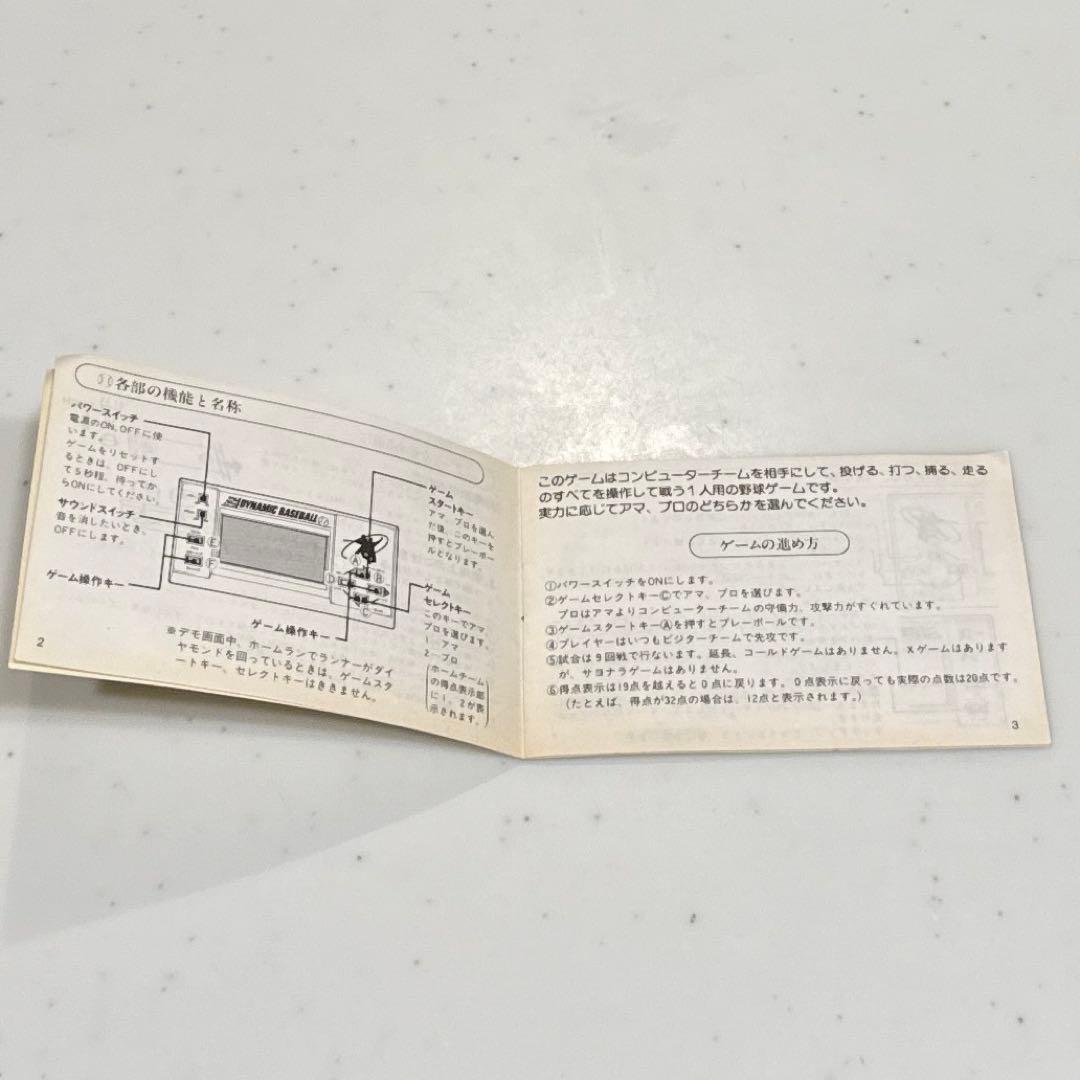 各部の機能と名称
パワースイッチ
電源のON、OFFに使
います。
ゲームをリセットす
るときは、OFFにし
て5秒程、待ってか
らONにしてください。
サウンドスイッチ
音を消したいとき、
OFFにします。
ゲーム操作キー
DYNAMIC BASEBALL
E
F
D
A
B
C
ゲーム
スタートキー
アマ、プロを選ん
だ後、このキーを
押すとプレーボー
ルとなります。
ゲーム
セレクトキー
このキーでアマ、
プロを選びます。
1-アマ
2-プロ
(ホームチーム
の得点表示部
に1、2が表
示されます。)
ゲーム操作キー
※デモ画面中、ホームランでランナーがダイ
ヤモンドを回っているときは、ゲームスタ
ートキー、セレクトキーはききません。
2
このゲームはコンピューターチームを相手にして、投げる、打つ、捕る、走る
のすべてを操作して戦う1人用の野球ゲームです。
実力に応じてアマ、プロのどちらかを選んでください。
ゲームの進め方
①パワースイッチをONにします。
②ゲームセレクトキーⒸでアマ、プロを選びます。
プロはアマよりコンピューターチームの守備力、攻撃力がすぐれています。
③ゲームスタートキーⒶを押すとプレーボールです。
④プレイヤーはいつもビジターチームで先攻です。
⑤試合は9回戦で行ないます。延長、コールドゲームはありません。Xゲームはあります
が、サヨナラゲームはありません。
⑥得点表示は19点を越えると0点に戻ります。0点表示に戻っても実際の点数は20点です。
(たとえば、得点が32点の場合は、12点と表示されます。)
3